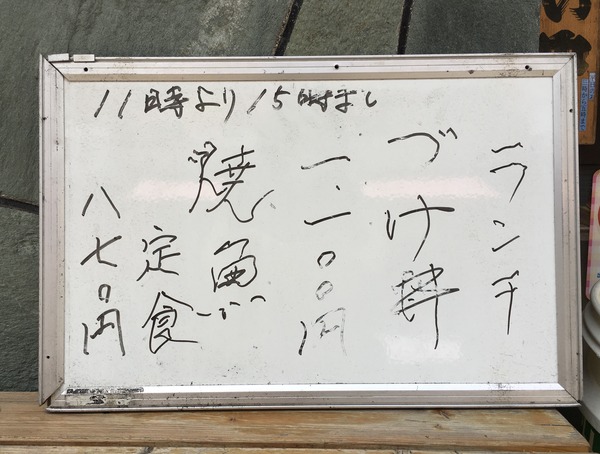 11時より15時まで
ランチ
づけ丼
一、一〇〇円
焼魚
定食
八七〇円